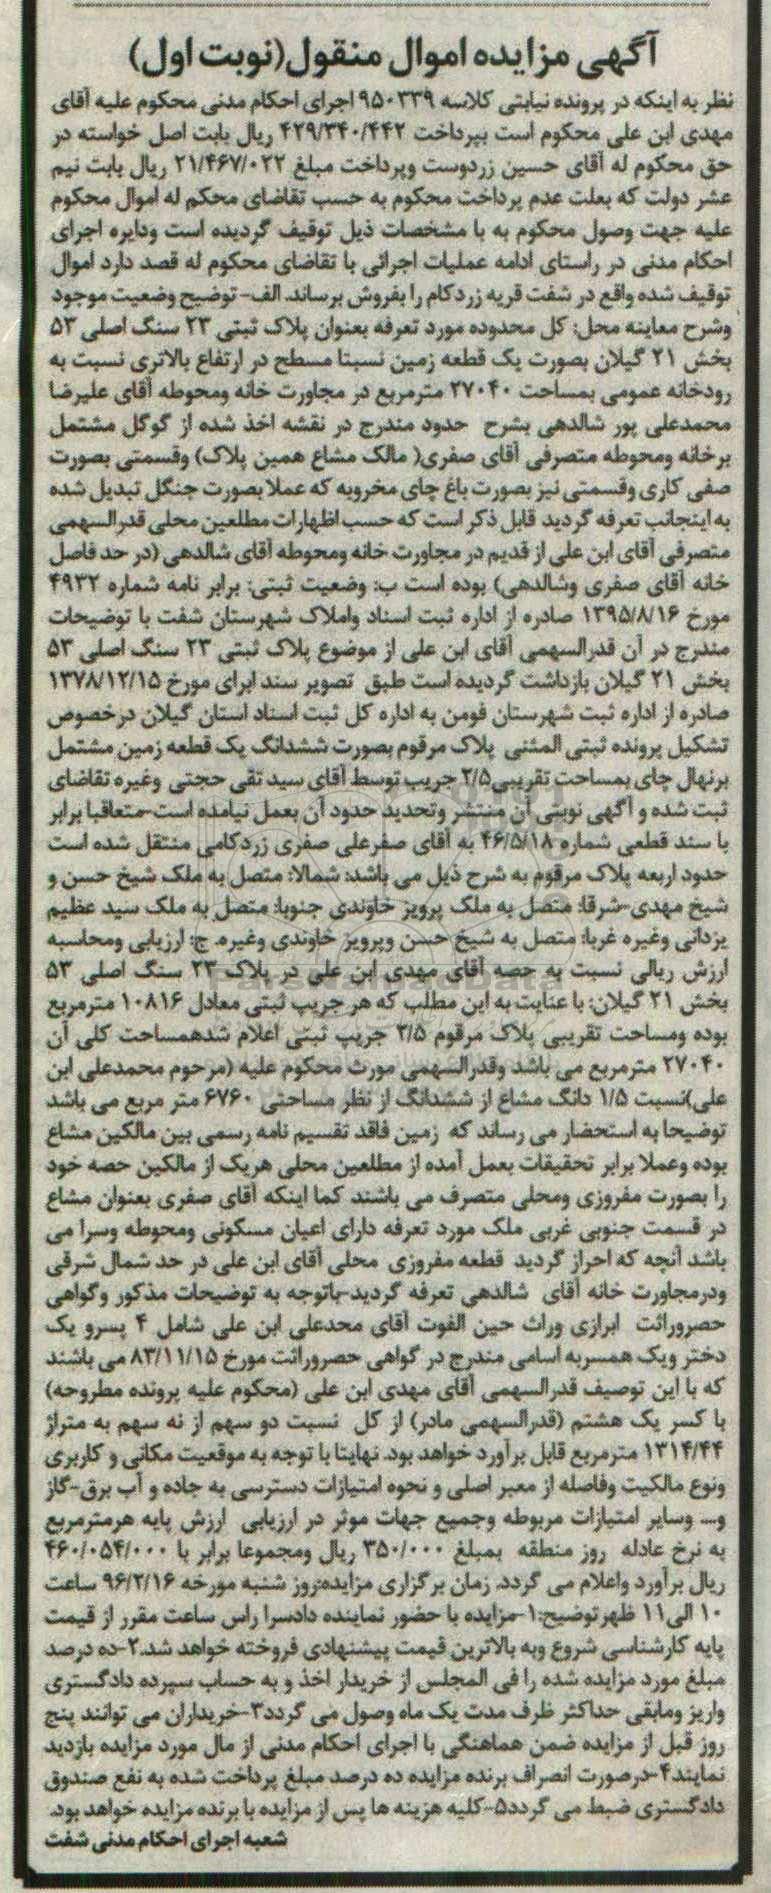 آگهی مزایده اموال منقول(نوبت اول)
نظر به اینکه در پرونده نیابتی کلاسه ۹۵۰۳۳۹ اجرای احکام مدنی محکوم علیه آقای
مهدی ابن علی محکوم است بپرداخت ۴۲۹/۳۴۰/۴۴۲ ریال بابت اصل خواسته در
حق محکوم له آقای حسین زردوست وپرداخت مبلغ ۲۱/۴۶۷/۰۲۲ ریال بابت نیم
عشر دولت که بعلت عدم پرداخت محکوم به حسب تقاضای محکم له اموال محکوم
علیه جهت وصول محکوم به با مشخصات ذیل توقیف گردیده است ودایره اجرای
احکام مدنی در راستای ادامه عملیات اجرائی با تقاضای محکوم له قصد دارد اموال
توقیف شده واقع در شفت قریه زردکام را بفروش برساند. الف- توضیح وضعیت موجود
وشرح معاینه محل: کل محدوده مورد تعرفه بعنوان پلاک ثبتی ۲۳ سنگ اصلی ۵۳
بخش ۲۱ گیلان بصورت یک قطعه زمین نسبتا مسطح در ارتفاع بالاتری نسبت به
رودخانه عمومی بمساحت ۲۷۰۴۰ مترمربع در مجاورت خانه ومحوطه آقای علیرضا
محمدعلی پور شالدهی بشرح حدود مندرج در نقشه اخذ شده از گوگل مشتمل
برخانه ومحوطه متصرفی آقای صفری( مالک مشاع همین پلاک) وقسمتی بصورت
صفی کاری وقسمتی نیز بصورت باغ چای مخروبه که عملا بصورت جنگل تبدیل شده
به اینجانب تعرفه گردید قابل ذکر است که حسب اظهارات مطلعین محلی قدرالسهمی
متصرفی آقای ابن علی از قدیم در مجاورت خانه ومحوطه آقای شالدهی (در حد فاصل
خانه آقای صفری وشالدهی) بوده است ب: وضعیت ثبتی: برابر نامه شماره ۴۹۳۲
مورخ ۱۳۹۵/۸/۱۶ صادره از اداره ثبت اسناد واملاک شهرستان شفت با توضیحات
مندرج در آن قدرالسهمی آقای ابن علی از موضوع پلاک ثبتی ۲۳ سنگ اصلی ۵۳
بخش ۲۱ گیلان بازداشت گردیده است طبق تصویر سند ابرای مورخ ۱۳۷۸/۱۲/۱۵
صادره از اداره ثبت شهرستان فومن به اداره کل ثبت اسناد استان گیلان درخصوص
تشکیل پرونده ثبتی المثنی پلاک مرقوم بصورت ششدانگ یک قطعه زمین مشتمل
برنهال چای بمساحت تقریبی۲/۵ جریب توسط آقای سید تقی حجتی وغیره تقاضای
ثبت شده و آگهی نوبتی آن منتشر وتحدید حدود آن بعمل نیامده است-متعاقبا برابر
با سند قطعی شماره ۴۶/۵/۱۸ به آقای صفرعلی صفری زردکامی منتقل شده است
حدود اربعه پلاک مرقوم به شرح ذیل می باشد: شمالا: متصل به ملک شیخ حسن و
شیخ مهدی-شرقا: متصل به ملک پرویز خاوندی جنوبا: متصل به ملک سید عظیم
یزدانی وغیره غربا: متصل به شیخ حسن وپرویز خاوندی وغیره. ج: ارزیابی ومحاسبه
ارزش ریالی نسبت به حصه آقای مهدی ابن علی در پلاک ۲۳ سنگ اصلی ۵۳
بخش ۲۱ گیلان: با عنایت به این مطلب که هر جریب ثبتی معادل ۱۰۸۱۶ مترمربع
بوده ومساحت تقریبی پلاک مرقوم ۲/۵ جریب ثبتی اعلام شدهمساحت کلی آن
۲۷۰۴۰ مترمربع می باشد وقدرالسهمی مورث محکوم علیه (مرحوم محمدعلی ابن
علی)نسبت ۱/۵ دانگ مشاع از ششدانگ از نظر مساحتی ۶۷۶۰ متر مربع می باشد
توضیحا به استحضار می رساند که زمین فاقد تقسیم نامه رسمی بین مالکین مشاع
بوده وعملا برابر تحقیقات بعمل آمده از مطلعین محلی هریک از مالکین حصه خود
را بصورت مفروزی ومحلی متصرف می باشند کما اینکه آقای صفری بعنوان مشاع
در قسمت جنوبی غربی ملک مورد تعرفه دارای اعیان مسکونی ومحوطه وسرا می
باشد آنچه که احراز گردید قطعه مفروزی محلی آقای ابن علی در حد شمال شرقی
ودرمجاورت خانه آقای شالدهی تعرفه گردید-باتوجه به توضیحات مذکور وگواهی
حصروراثت ابرازی وراث حین الفوت آقای محدعلی ابن علی شامل ۴ پسرو یک
دختر ویک همسربه اسامی مندرج در گواهی حصروراثت مورخ ۸۳/۱۱/۱۵ می باشند
که با این توصیف قدرالسهمی آقای مهدی ابن علی (محکوم علیه پرونده مطروحه)
با کسر یک هشتم (قدرالسهمی مادر) از کل نسبت دو سهم از نه سهم به متراژ
۱۳۱۴/۴۴ مترمربع قابل برآورد خواهد بود. نهایتا با توجه به موقعیت مکانی و کاربری
ونوع مالکیت وفاصله از معبر اصلی و نحوه امتیازات دسترسی به جاده و آب برق-گاز
و... وسایر امتیازات مربوطه وجمیع جهات موثر در ارزیابی ارزش پایه هرمترمربع
به نرخ عادله روز منطقه بمبلغ ۳۵۰/۰۰۰ ریال ومجموعا برابر با ۴۶۰/۰۵۴/۰۰۰
ریال برآورد واعلام می گردد. زمان برگزاری مزایده:روز شنبه مورخه ۹۶/۲/۱۶ ساعت
۱۰ الی۱۱ ظهرتوضیح:۱-مزایده با حضور نماینده دادسرا راس ساعت مقرر از قیمت
پایه کارشناسی شروع وبه بالاترین قیمت پیشنهادی فروخته خواهد شد.۲-ده درصد
مبلغ مورد مزایده شده را فی المجلس از خریدار اخذ و به حساب سپرده دادگستری
واریز ومابقی حداکثر ظرف مدت یک ماه وصول می گردد۳-خریداران می توانند پنج
روز قبل از مزایده ضمن هماهنگی با اجرای احکام مدنی از مال مورد مزایده بازدید
نمایند۴-درصورت انصراف برنده مزایده ده درصد مبلغ پرداخت شده به نفع صندوق
دادگستری ضبط می گردد۵-کلیه هزینه ها پس از مزایده با برنده مزایده خواهد بود.
شعبه اجرای احکام مدنی شفت